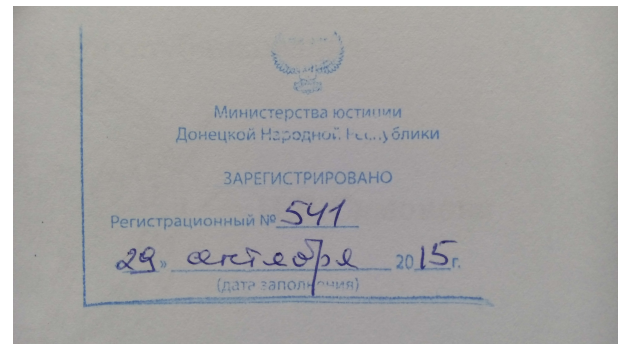 Министерства юстиции
Донецкой Народной Республики
ЗАРЕГИСТРИРОВАНО
Регистрационный № 541
29» октября 2015г.
(дата заполнения)